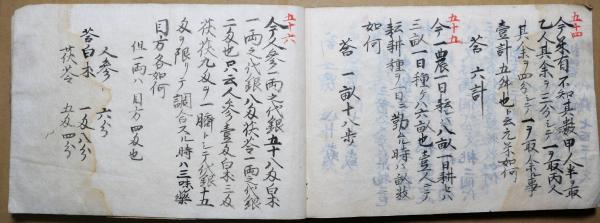 五十四
今米有不知其数甲人半ヲ取
乙人其余ヲ三分シテ一ヲ取丙人
其余ヲ四分シテ一ヲ取余米
壹斗五升也ト云元米如何
答 六斗
五十五
今一農一日耘スハ八畝一日耕スハ
三畝一日種ケハ六畝也壹人ニテ
耘耕種ヲ一日ニ勤ル時ハ畝数
如何
答 一畝十八歩
五十六
今人参一両之代銀五十八匁白朮
一両之代銀八匁茯苓一両之代銀
二匁也只云人参壹匁白朮三匁
茯苓九匁ヲ一劑トシテ代銀十五
匁ヲ限リテ調合スル時ハ三味薬
目方各如何
但一両ハ目方四匁也
人参 六分
答白朮 一匁八分
茯苓 五匁四分